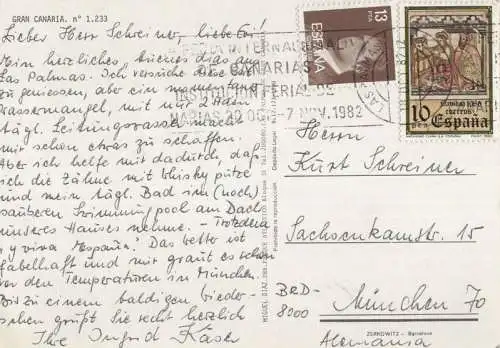 GRAN CANARIA. nº 1.233
Lieber Herr Schreiner, liebe Evi!
Mein herzliches, buenos dias aus
Las Palmas. Ich versuche dies hier
zu geniessen, aber ein momentaner
Wassermangel, mit nur 2 Stden
tägl. Leitungswasser macht
mir schon etwas zu schaffen.
Aber ich helfe mir dadurch, daß
ich die Zähne mit Whisky putze
und mein tägl. Bad im (noch)
sauberen Swimmingpool am Dach
unseres Hauses nehme. - Trotzdem
"y viva España". Das Wetter ist
fabelhaft und mir graut es schon
vor den Temperaturen in München
Bis zu einem baldigen Wieder-
sehen grüßt Sie recht herzlich
Ihre Ingrid Käser
13
PTA
ESPAÑA
FERIA INTERNACIONAL
DE CANARIAS
INSTITUCION FERIAL DE
CANARIAS 22 OCT - 7 NOV. 1982
LAS PALMAS
10
PTAS
correos
España
Depósito Legal
Prohibida la reproducción
Herrn
Kurt Schreiner
Sachsenkamstr. 15
BRD-
8000 München 70
Alemania
ZERKOWITZ - Barcelona